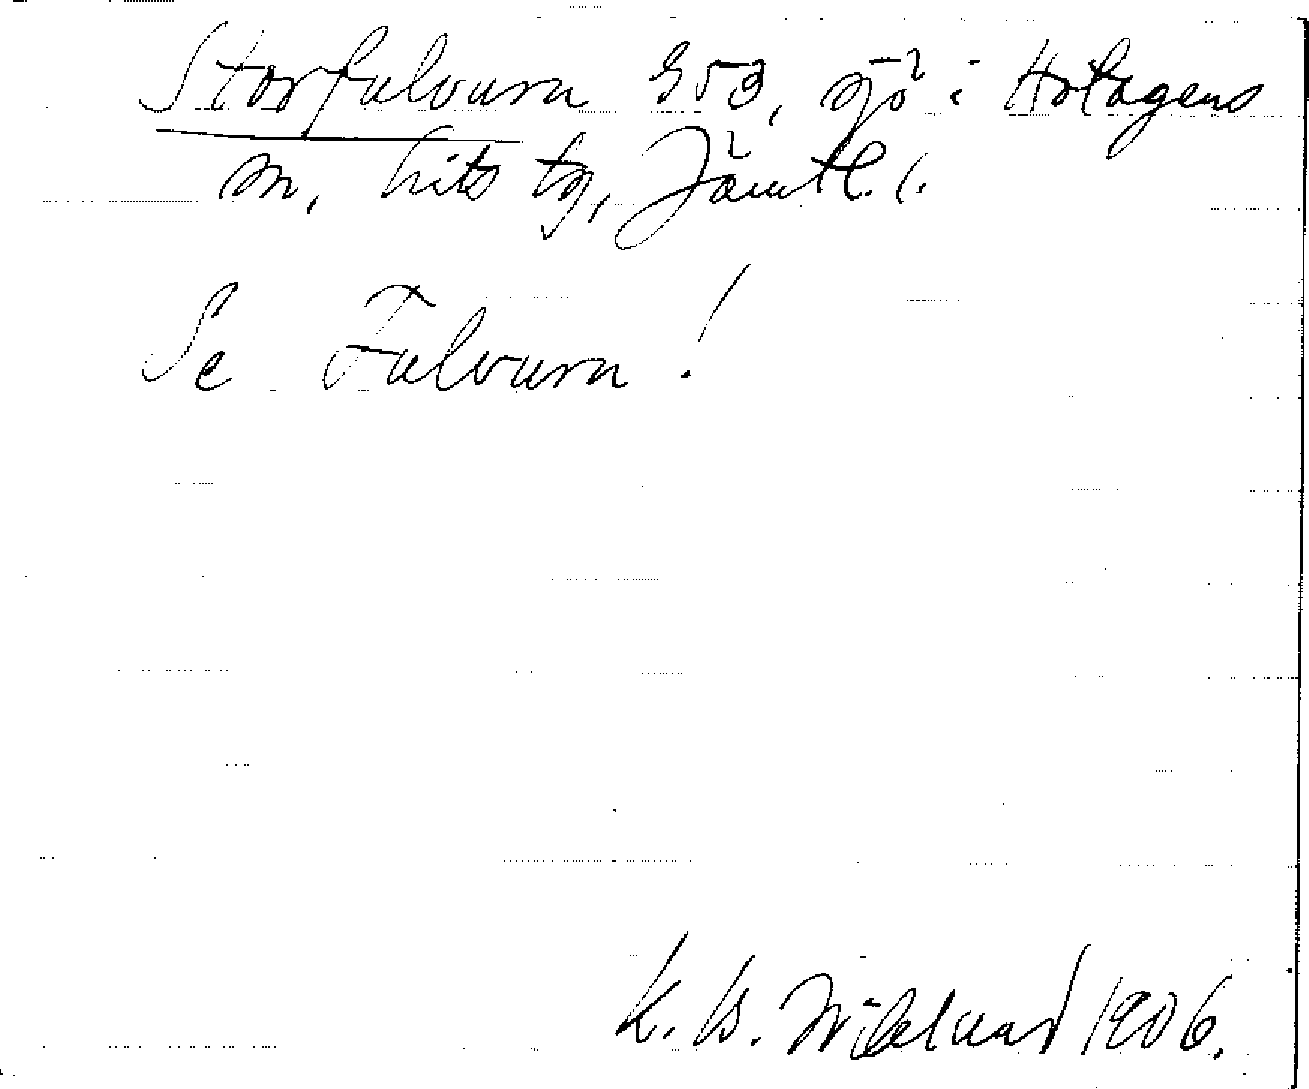 Storfulvurn 353, sjö i Hotagens
sn, Lits tg, Jämtl. l.
Se Fulvurn!
K. B. Wiklund 1906.